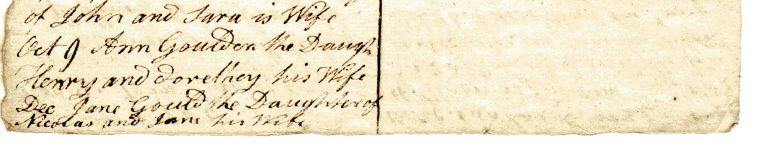 of John and Sara is Wife
Oct 9 Ann Goulden the Daugh
Henry and Dorethey his Wife
Dec Jane Gould the Daughter of
Nicolas and Jane his Wife